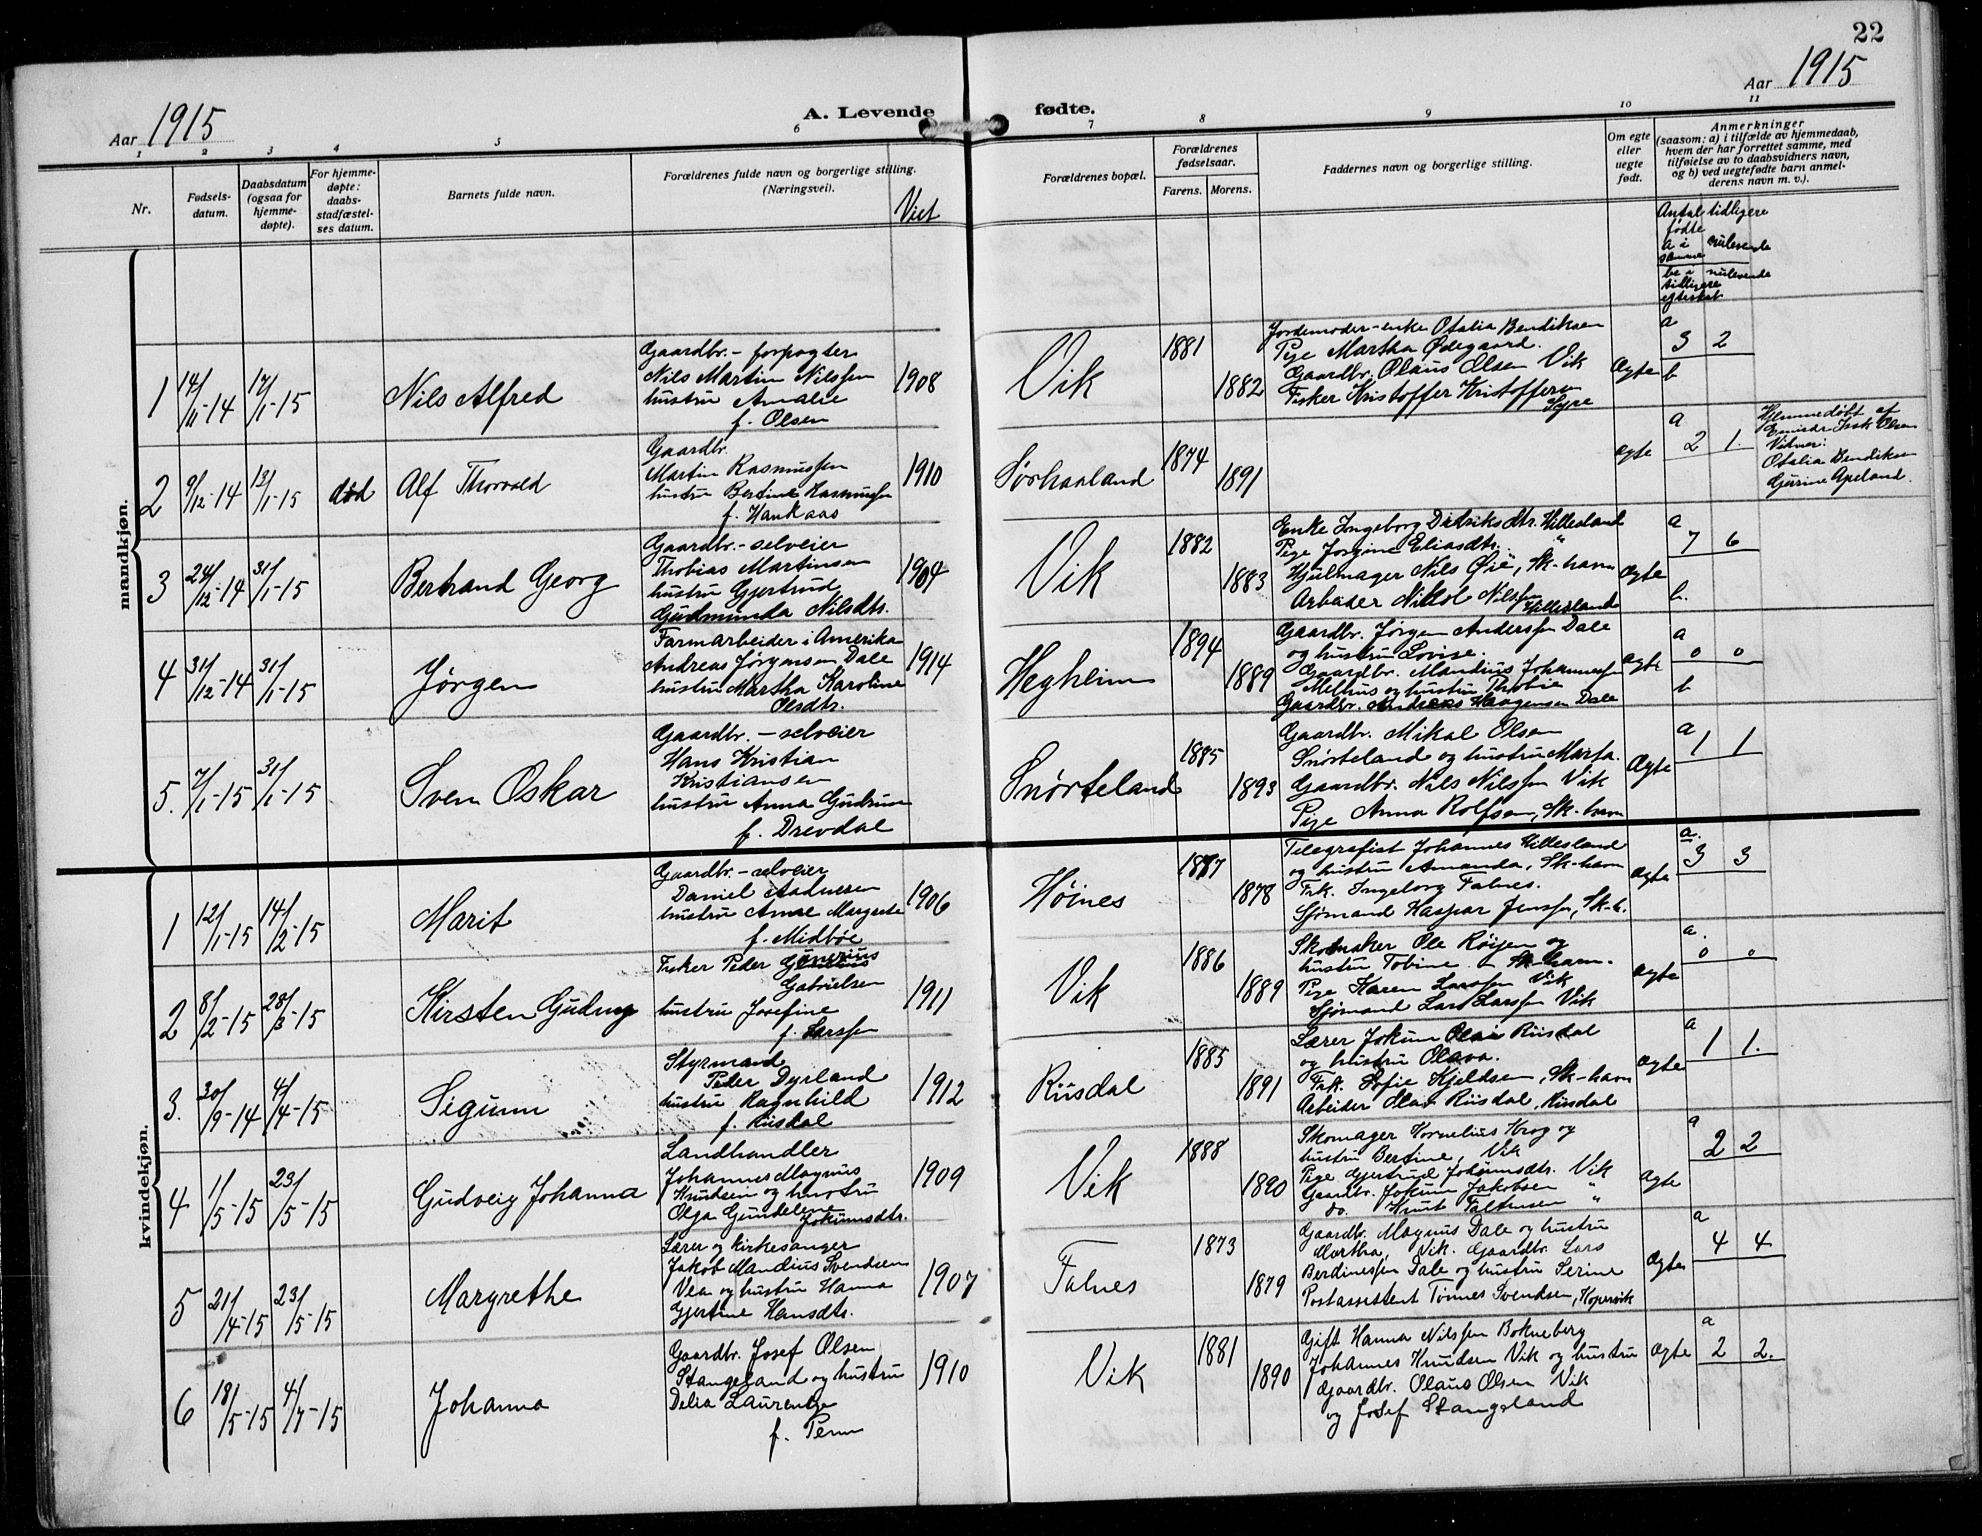 22
Aar 1915
A. Levende fødte.
Aar 1915
1 2 3 4 5 6 7 8 9 10 11
Nr.
Fødsels-
datum.
Daabsdatum
(ogsaa for
hjemme-
døpte).
For hjemme-
døpte:
daabs-
stadfæstel-
ses datum.
Barnets fulde navn.
Forældrenes fulde navn og borgerlige stilling.
(Næringsvei).
Viet
Forældrenes bopæl.
Forældrenes
fødselsaar.
Farens. Morens.
Faddernes navn og borgerlige stilling.
Om egte
eller
uegte
født.
Anmerkninger
(saasom: a) i tilfælde av hjemmedaab,
hvem der har forrettet samme, med
tilføielse av to daabsvidners navn,
og b) ved uegtefødte barn anmel-
derens navn m. v.).
Antal tidligere
fødte
a i nulevende
samme
b i nulevende
tidligere
egteskab
mandkjøn.
1 14/11-14 17/1-15 Nils Alfred
Gaardbr. - forpagter
Nils Martin Nilssen
hustru Amalie
f. Olsen
1908
Vik
1881
1882
Jordemoder-enke Otalia Bendiksen
Pige Martha Ødegaard.
Gaardbr. Olaus Olsen Vik
Fisker Kristoffer Kristoffersen
Syre
Ægte
a
3 2
b
2 9/12-14 13/1-15 død Alf Thorvald
Gaardbr.
Martin Rasmussen
hustru Bertine Rasmussen
f. Haukaas
1910
Sørhaaland
1874
1891
ægte
a
2 1.
Hjemmedøbt af
Isak Olsen
Vidner:
Otalia Bendiksen
Gurine Apeland.
3 24/12-14 31/1-15 Bertrand Georg
Gaardbr. - selveier
Thobias Martinsen
hustru Gjertrud
Gudmunda Nilsdtr.
1904
Vik
1882
1883
Enke Ingeborg Didriksdtr. Hillesland
Pige Jorgine Eliasdtr. "
Hjulmager Nils Øie, Sk-havn
Arbeider Nikol Nilssen
Hillesland
Ægte
a
7 6
b.
4 31/12-14 31/1-15 Jørgen
Farmarbeider i Amerika
Andreas Jørgensen Dale
hustru Martha Karoline
Olsdtr.
1914
Hegheim
1894
1889
Gaardbr. Jørgen Anderssen Dale
og hustru Lovise.
Gaardbr. Mandius Johannessen
Melhus og hustru Thobie
Gaardbr. Andreas Haagensen Dale
ægte
a
0 0
b
5. 7/1-15 31/1-15 Sven Oskar
Gaardbr. - selveier
Hans Kristian
Kristiansen
hustru Anna Gudrun
f. Drevdal
1885
Snørteland
1893
Gaardbr. Mikal Olsen
Snørteland og hustru Marta.
Gaardbr. Nils Nilssen Vik
Pige Anna Rolfsen, Sk-havn
Ægte
a
1 1
kvindekjøn.
1 12/1-15 14/2-15 Marit
Gaardbr. - selveier
Daniel Aadnesen
hustru Anne Margrete
f. Midbøe
1906
Høines
1877
1878
Telegrafist Johannes Hillesland
og hustru Amanda, Sk-havn
Frk. Ingeborg Falnes.
Sjømand Kaspar Jenssen, Sk-h.
Ægte
a.
3 3
2 8/2-15 28/3-15 Kirsten Gudny
Fisker Peder
Gabrielsen
hustru Josefine
f. Larssen
1911
Vik
1886
1889
Skomaker Ole Røisen og
hustru Tobine - Sk-havn.
Pige Karen Larssen Vik
Sjømand Lars Larssen Vik
ægte
a.
0 0
3. 30/9-14 4/4-15 Sigunn
Styrmand
Peder Dyrland
hustru Ragnhild
f. Riisdal
1912
Riisdal
1885
1891
Lærer Jokum Olai Riisdal
og hustru Olava.
Frk. Sofie Kjeldsen, Sk-havn
Arbeider Olav Riisdal, Riisdal
ægte
a
1 1.
4 1/5-15 23/5-15 Gudveig Johanna
Landhandler
Johannes Magnus
Knudsen og hustru
Olga Gundelene
Jokumsdtr.
1909
Vik
1888
1890
Skomager Kornelius Krog og
hustru Bertine, Vik
Pige Gjertrud Jokumsdtr. Vik
Gaardbr. Jokum Jakobsen "
do. Knut Faltinsen "
Ægte
a
2 2
5 21/4-15 23/5-15 Margrethe
Lærer og kirkesanger
Jakob Mandius Svendsen
Vea og hustru Hanna
Gjertine Hansdtr.
1907
Falnes
1873
1879
Gaardbr. Magnus Dale og hustru
Martha, Vik. Gaardbr. Lars
Berdinessen Dale og hustru Serine
Postassistent Tønnes Svendsen, Kopervik
Ægte
a
4 4
6 18/5-15 4/7-15 Johanna
Gaardbr. Josef Olsen
Stangeland og hustru
Delia Laurentze
f.
1910
Vik
1881
1890
Gift Hanna Nilssen Bokneberg
Johannes Knudsen Vik og hustru
Gaardbr. Olaus Olsen Vik
og Josef Stangeland
Ægte
a
2 2.